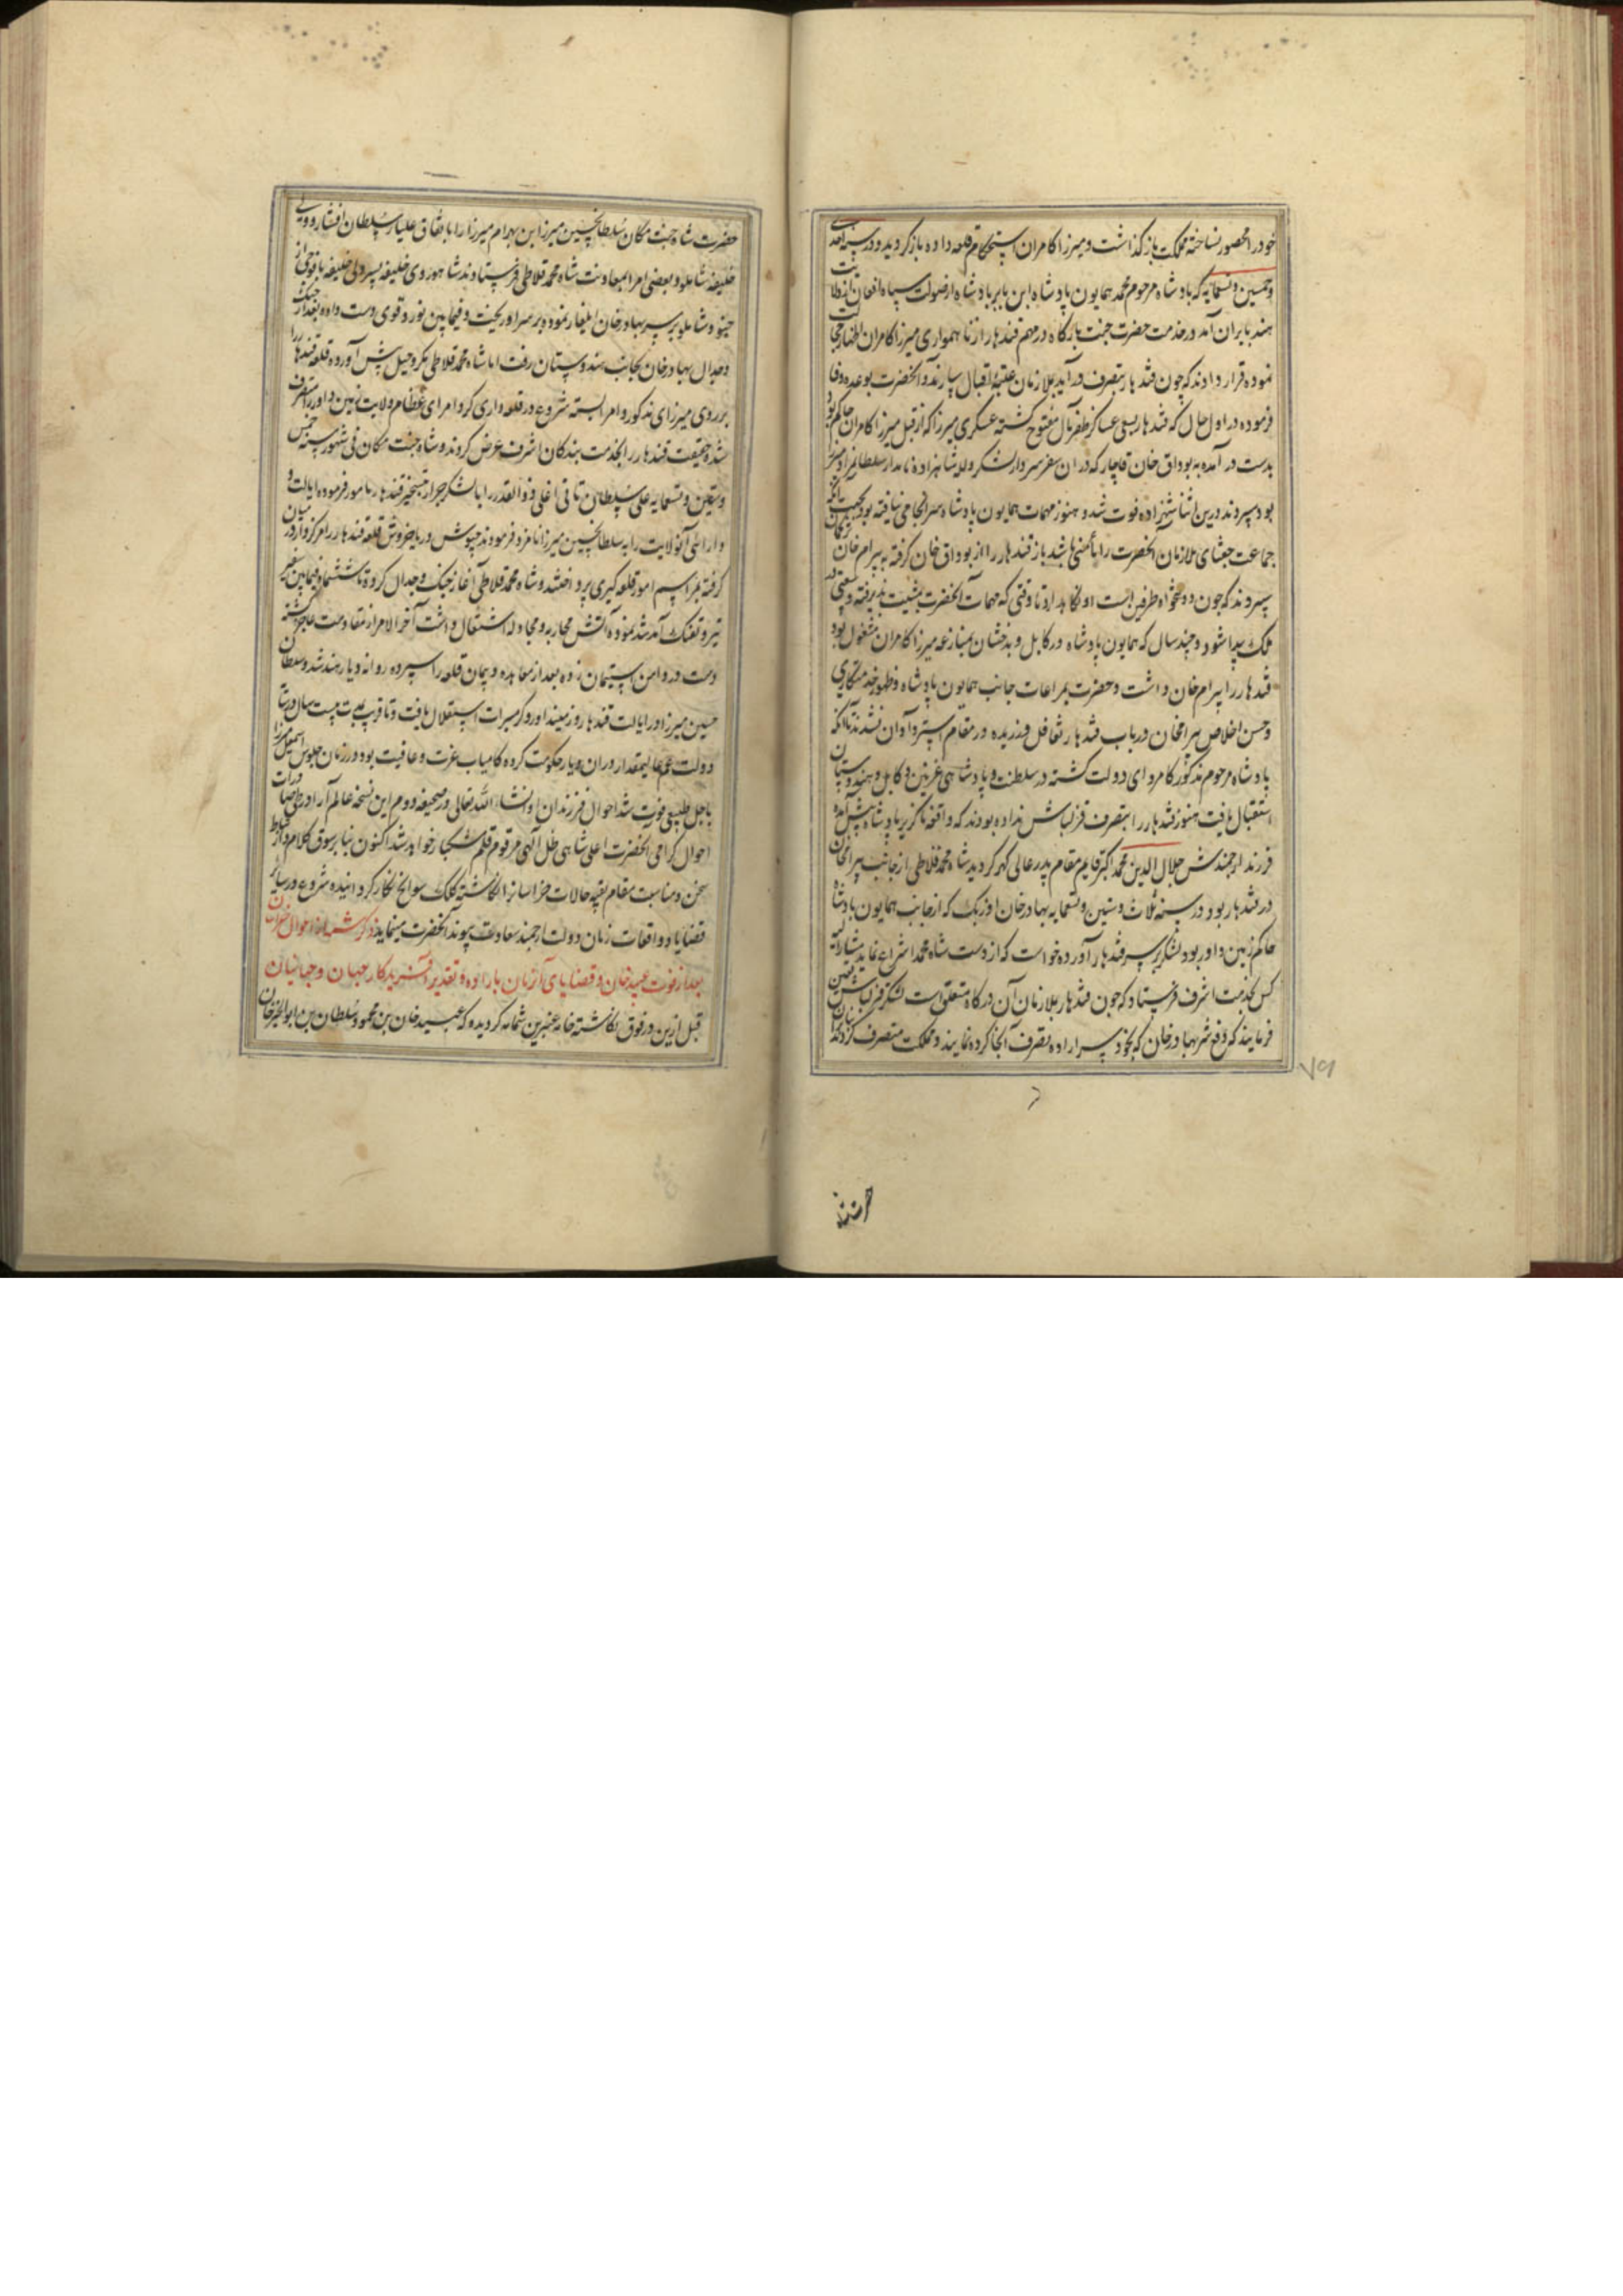 خود را محصور نساخته مملکت باز گذاشت و میرزا کامران استحکام قلعه داده باز گردید و در سنه احدی
و خمسین و تسعمایه که پادشاه مرحوم محمد همایون پادشاه ابن بابر پادشاه از صولت سپاه افغان از ولایت
هند بایران آمد در خدمت حضرت جنت بارگاه در مهم قندهار از ناهمواری میرزا کامران اظهار
نموده قرار دادند که چون قندهار بتصرف درآید بملازمان عتبه اقبال سپارند و آنحضرت بوعده وفا
فرموده در اول حال که قندهار بسعی عساکر ظفر مآل مفتوح گشته عسکری میرزا که از قبل میرزا کامران حاکم بود
بدست درآمده به بوداق خان قاجار که در ان سفر سردار لشکر و لله شاهزاده نامدار سلطان مراد میرزا
بود سپردند درین اثنا شهزاده فوت شد و هنوز مهمات همایون پادشاه سرانجامی نیافته بود بجهت آنکه
جماعت جغتای ملازمان آنحضرت را مأمنی باشد باز قندهار را از بوداق خان گرفته به بیرام خان
سپردند که چون دولتخواه طرفین است او نگاه دارد تا وقتی که مهمات آنحضرت بمشیت پذیرفته وسعتی در
ملک پیدا شود و چند سال که همایون پادشاه در کابل و بدخشان بمنازعه میرزا کامران مشغول بود
قندهار را بیرام خان داشت و حضرت بمراعات جانب همایون پادشاه و ظهور خدمتکاری
و حسن اخلاص بیرامخان در باب قندهار تغافل ورزیده در مقام استرداد آن نشدند تا آنکه
پادشاه مرحوم مذکور کامروای دولت گشته در سلطنت و پادشاهی غزنین و کابل و هندوستان
استقبال یافت هنوز قندهار را بتصرف قزلباش نداده بودند که واقعه ناگزیر پادشاه پیش آمده
فرزند ارجمندش جلال الدین محمد اکبر قایم مقام پدر عالی گهر گردید شاه محمد قلاطی از جانب بیرامخان
در قندهار بود و در سنه ثلاث و ستین و تسعمایه بهادر خان اوزبک که از جانب همایون پادشاه
حاکم زمین داور بود لشکر بر سر قندهار آورده خواست که از دست شاه محمد انتزاع نماید مشارالیه
کس بخدمت اشرف فرستاد که چون قندهار بملازمان آن درگاه متعلق است لشکر قزلباش تعیین
فرمایند که دفع شر بهادر خان که بخود سر اراده تصرف آنجا کرده نمایند و مملکت متصرف گردند
حضرت
۷۹
حضرت شاه جنت مکان سلطان حسین میرزا ابن بهرام میرزا را باتفاق علیار سلطان افشار و ولی
خلیفه شاملو و بعضی امرا بمعاونت شاه محمد قلاطی فرستادند شاهوردی خلیفه پسر ولی خلیفه با فوجی از
جنود شاملو بر سر بهادر خان ایلغار نموده بر سر او ریخت و فیمابین نزاع قوی دست داده بعد از جنگ
و جدال بهادر خان بجانب هندوستان رفت اما شاه محمد قلاطی مکر و حیل پیش آورده قلعه قندهار را
بر روی میرزای مذکور و امرا بسته شروع در قلعه داری کرد امرای عظام ولایت زمین داور را متصرف
شده حقیقت قندهار را بخدمت بندگان اشرف عرض کردند و شاه جنت مکان فی شهور سنه خمس
و ستین و تسعمایه علی سلطان تاتی اغلی ذوالقدر را با لشکر جرار بتسخیر قندهار مامور فرموده ایالت و
دارائی آنولایت را به سلطان حسین میرزا نامزد فرمودند جیوش دریا خروش قلعه قندهار را مرکزوار در میان
گرفته بمراسم امور قلعه گیری پرداختند و شاه محمد قلاطی آغاز جنگ و جدال کرده تا ششماه فیمابین سفیر
تیر و تفنگ آمد شد نموده آتش محاربه و مجادله اشتعال داشت آخر الامر از مقاومت عاجز گشته
دست در دامن استیمان زده بعد از معاهده و پیمان قلعه را سپرده روانه دیار هند شد و سلطان
حسین میرزا در ایالت قندهار و زمینداور و گرمسیرات استقلال یافت و تا قریب بیست سال در سایه
دولت عم عالیمقدار در ان دیار حکومت کرده کامیاب عزت و عافیت بود در زمان جلوس اسمعیل میرزا
باجل طبیعی فوت شد احوال فرزندان او انشاء الله تعالی در صحیفه دوم این نسخه عالم آرا در طی صادرات
احوال گرامی آنحضرت اعلی شاهی ظل الهی مرقوم قلم مشکبار خواهد شد اکنون بنا بر سوق کلام و ارتباط
سخن و مناسبت مقام بقیه حالات خراسانرا نگاشته کلک سوانح نگار گردانیده شروع در سایر
قضایا و واقعات زمان دولت ارجمند سعادت پیوند آنحضرت مینماید ذکر شمه از احوال خراسان
بعد از فوت عبید خان و قضایای آن زمان باراده و تقدیر آفریدگار جهان و جهانیان
قبل ازین در فوق نگاشته خامه عنبرین شمامه گردید که عبید خان بن محمود سلطان بن ابوالخیر خان